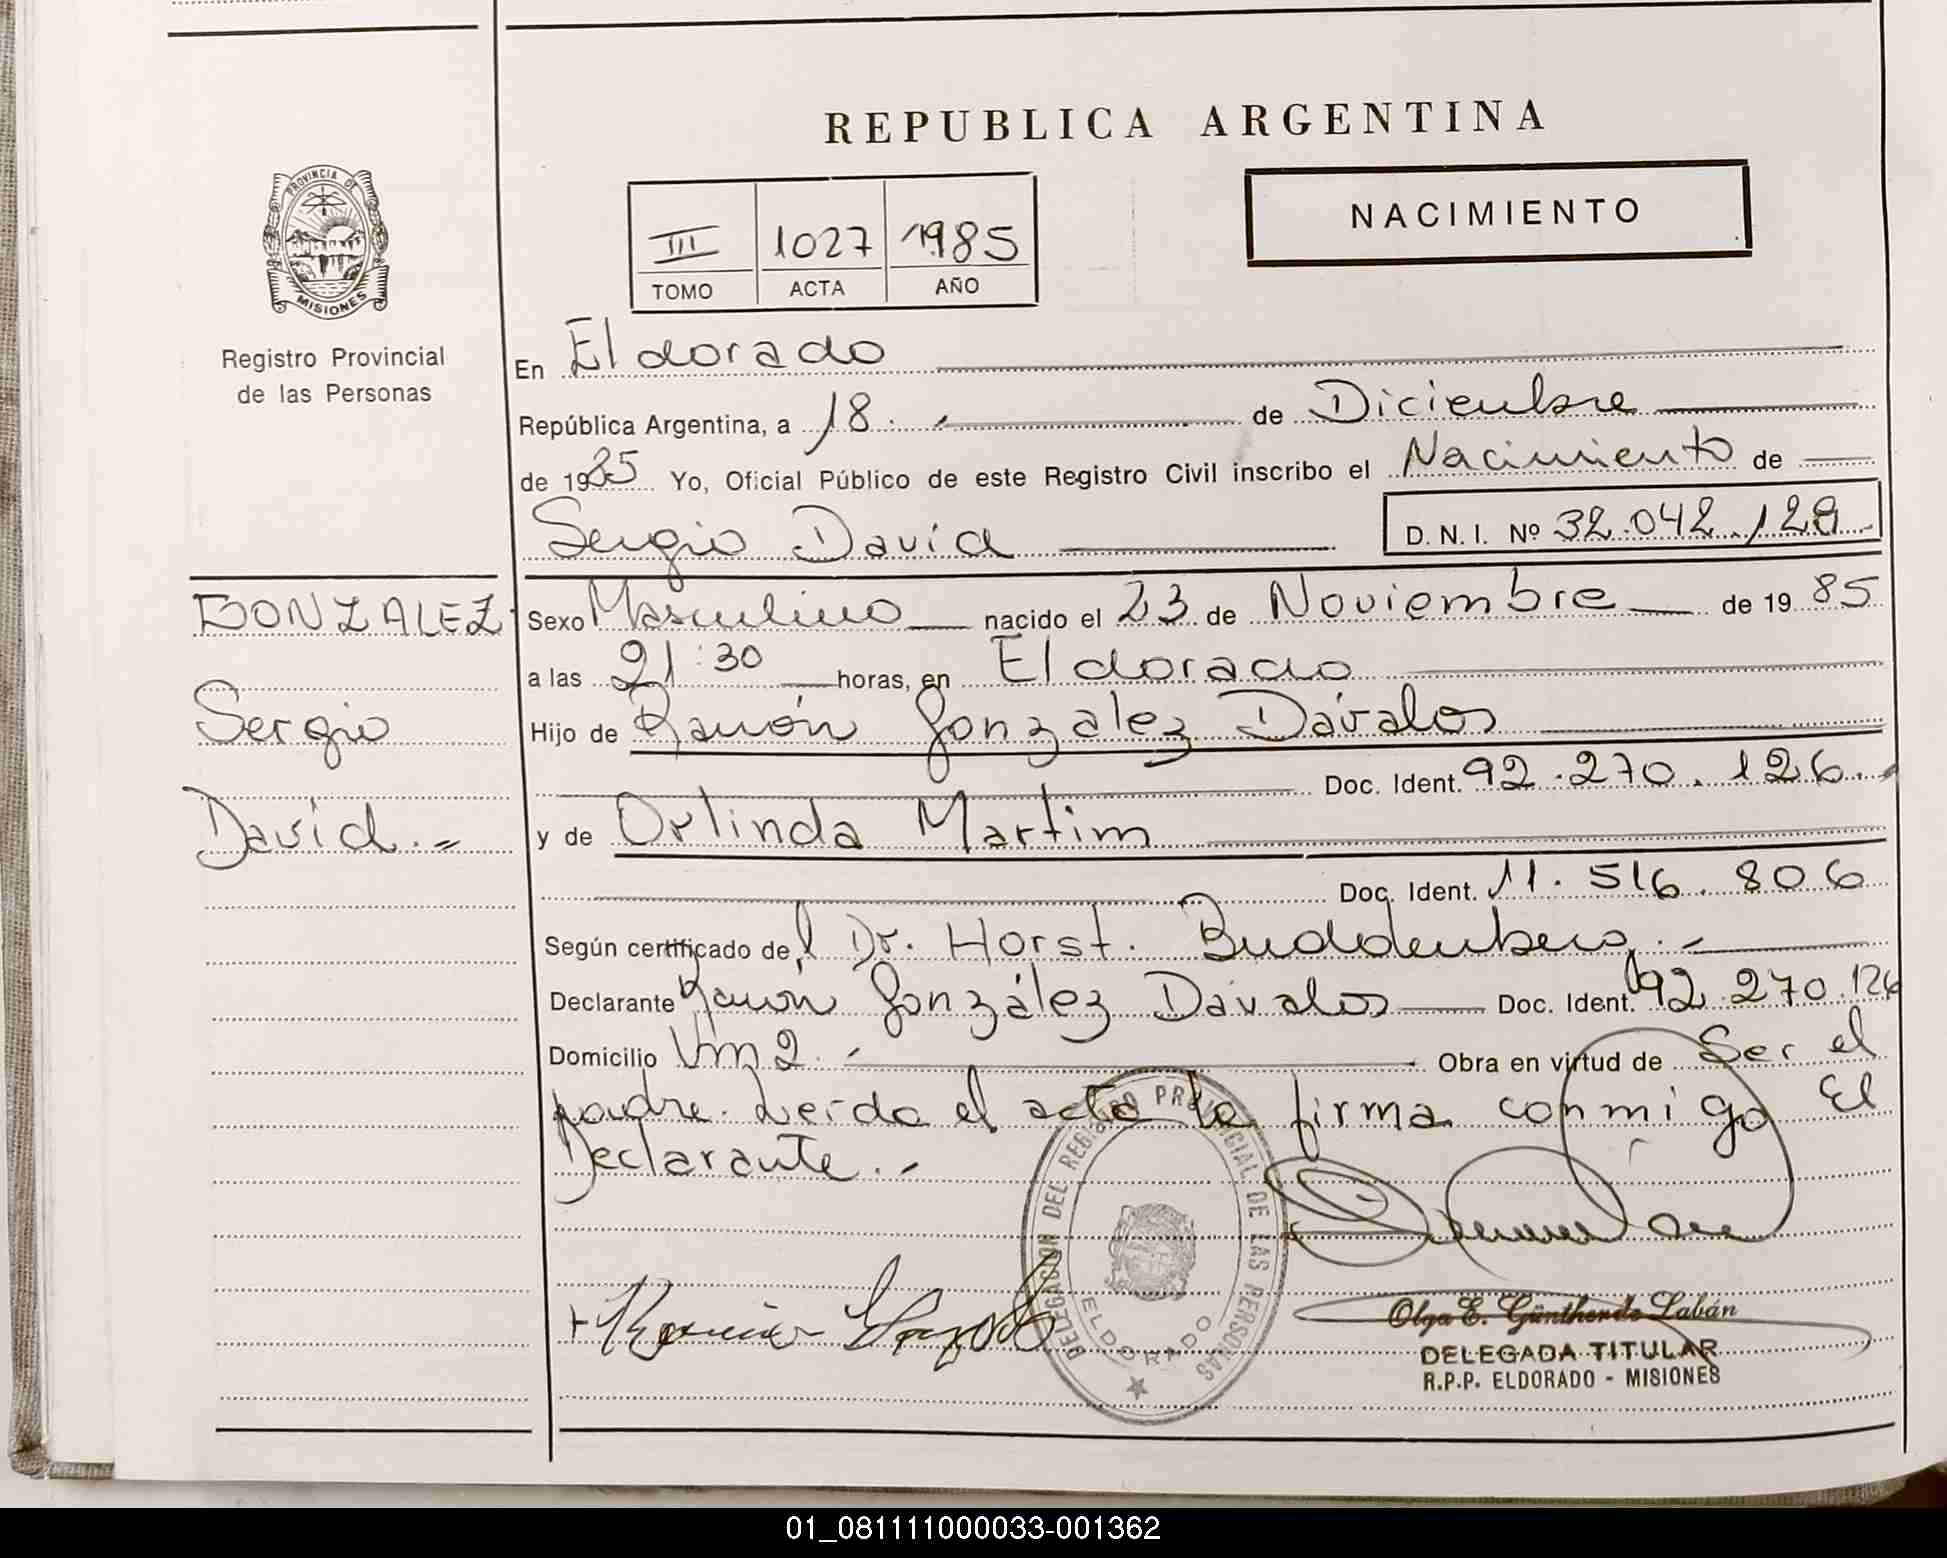 REPUBLICA ARGENTINA
PROVINCIA DE
MISIONES
Registro Provincial
de las Personas
III 1027 1985
TOMO ACTA AÑO
NACIMIENTO
En Eldorado
República Argentina, a 18.- de Diciembre
de 1985 Yo, Oficial Público de este Registro Civil inscribo el Nacimiento de
Sergio David
D. N. I. Nº 32.042.128
GONZALEZ
Sergio
David.=
Sexo Masculino nacido el 23 de Noviembre de 1985
a las 21:30 horas, en Eldorado
Hijo de Ramón González Dávalos
Doc. Ident. 92.270.126.-
y de Orlinda Martim
Doc. Ident. 11.516.806
Según certificado del Dr. Horst. Buddenberg.-
Declarante Ramón González Dávalos Doc. Ident. 92.270.126
Domicilio Km 2.- Obra en virtud de Ser el
padre. Leída el acta la firma conmigo El
Declarante.-
DELEGACION DEL REGISTRO PROVINCIAL DE LAS PERSONAS
ELDORADO
Olga E. Günther de Labán
DELEGADA TITULAR
R.P.P. ELDORADO - MISIONES
01_081111000033-001362